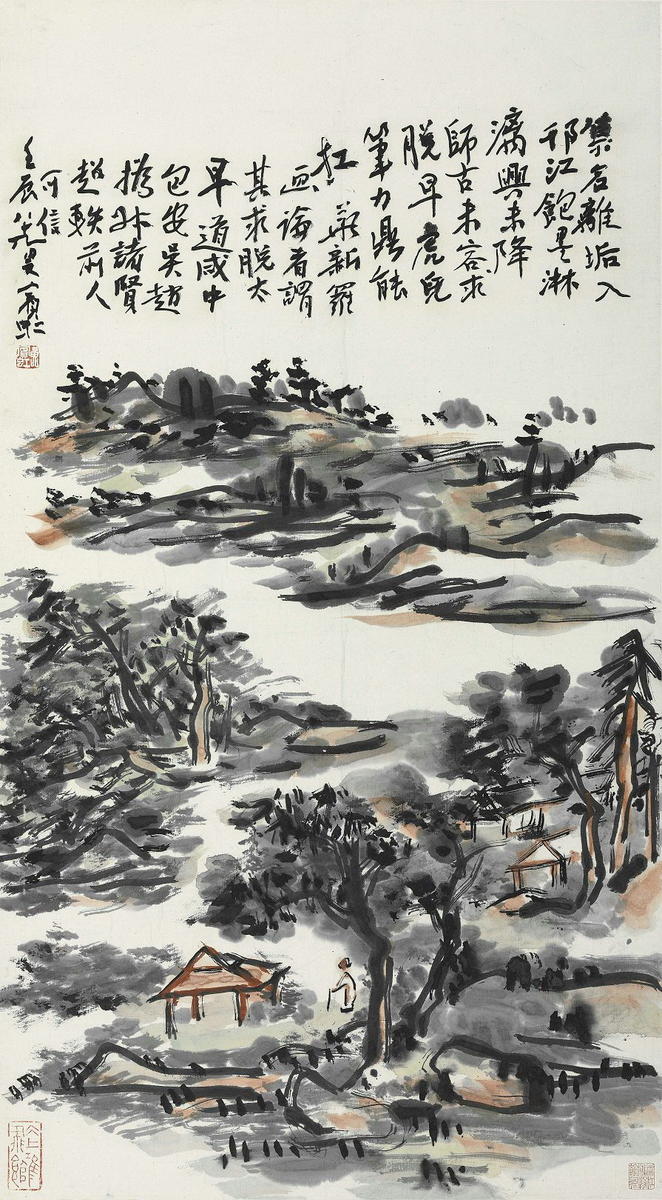 集名離垢入
邗江飽墨淋
漓興未降
師古未容求
脫早虎兒
筆力鼎能
扛華新羅
畫論者謂
其求脫太
早道咸中
包安吳趙
撝叔諸賢
超軼前人
可信
壬辰八十九叟賓虹